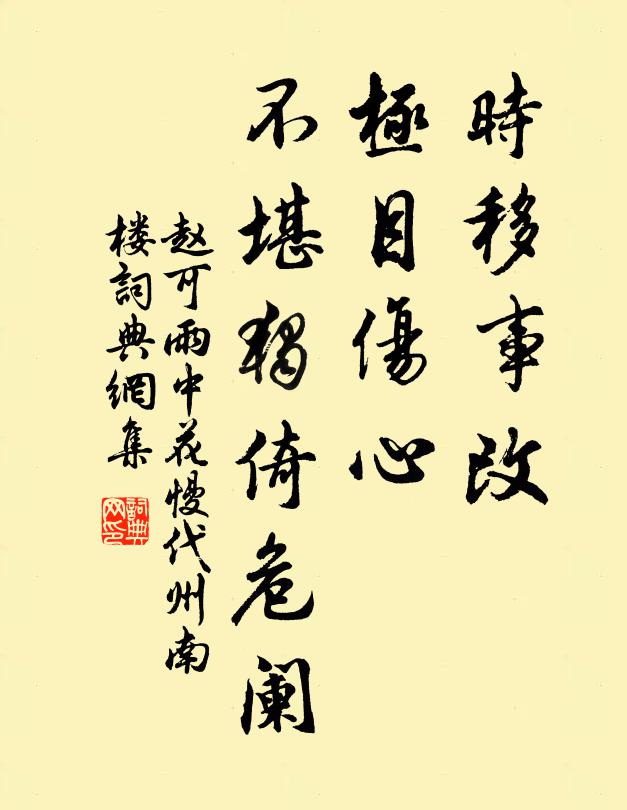 時移事改
極目傷心
不堪獨倚危阑
赵可雨中花慢代州南
楼詞典網集
詞典
网印